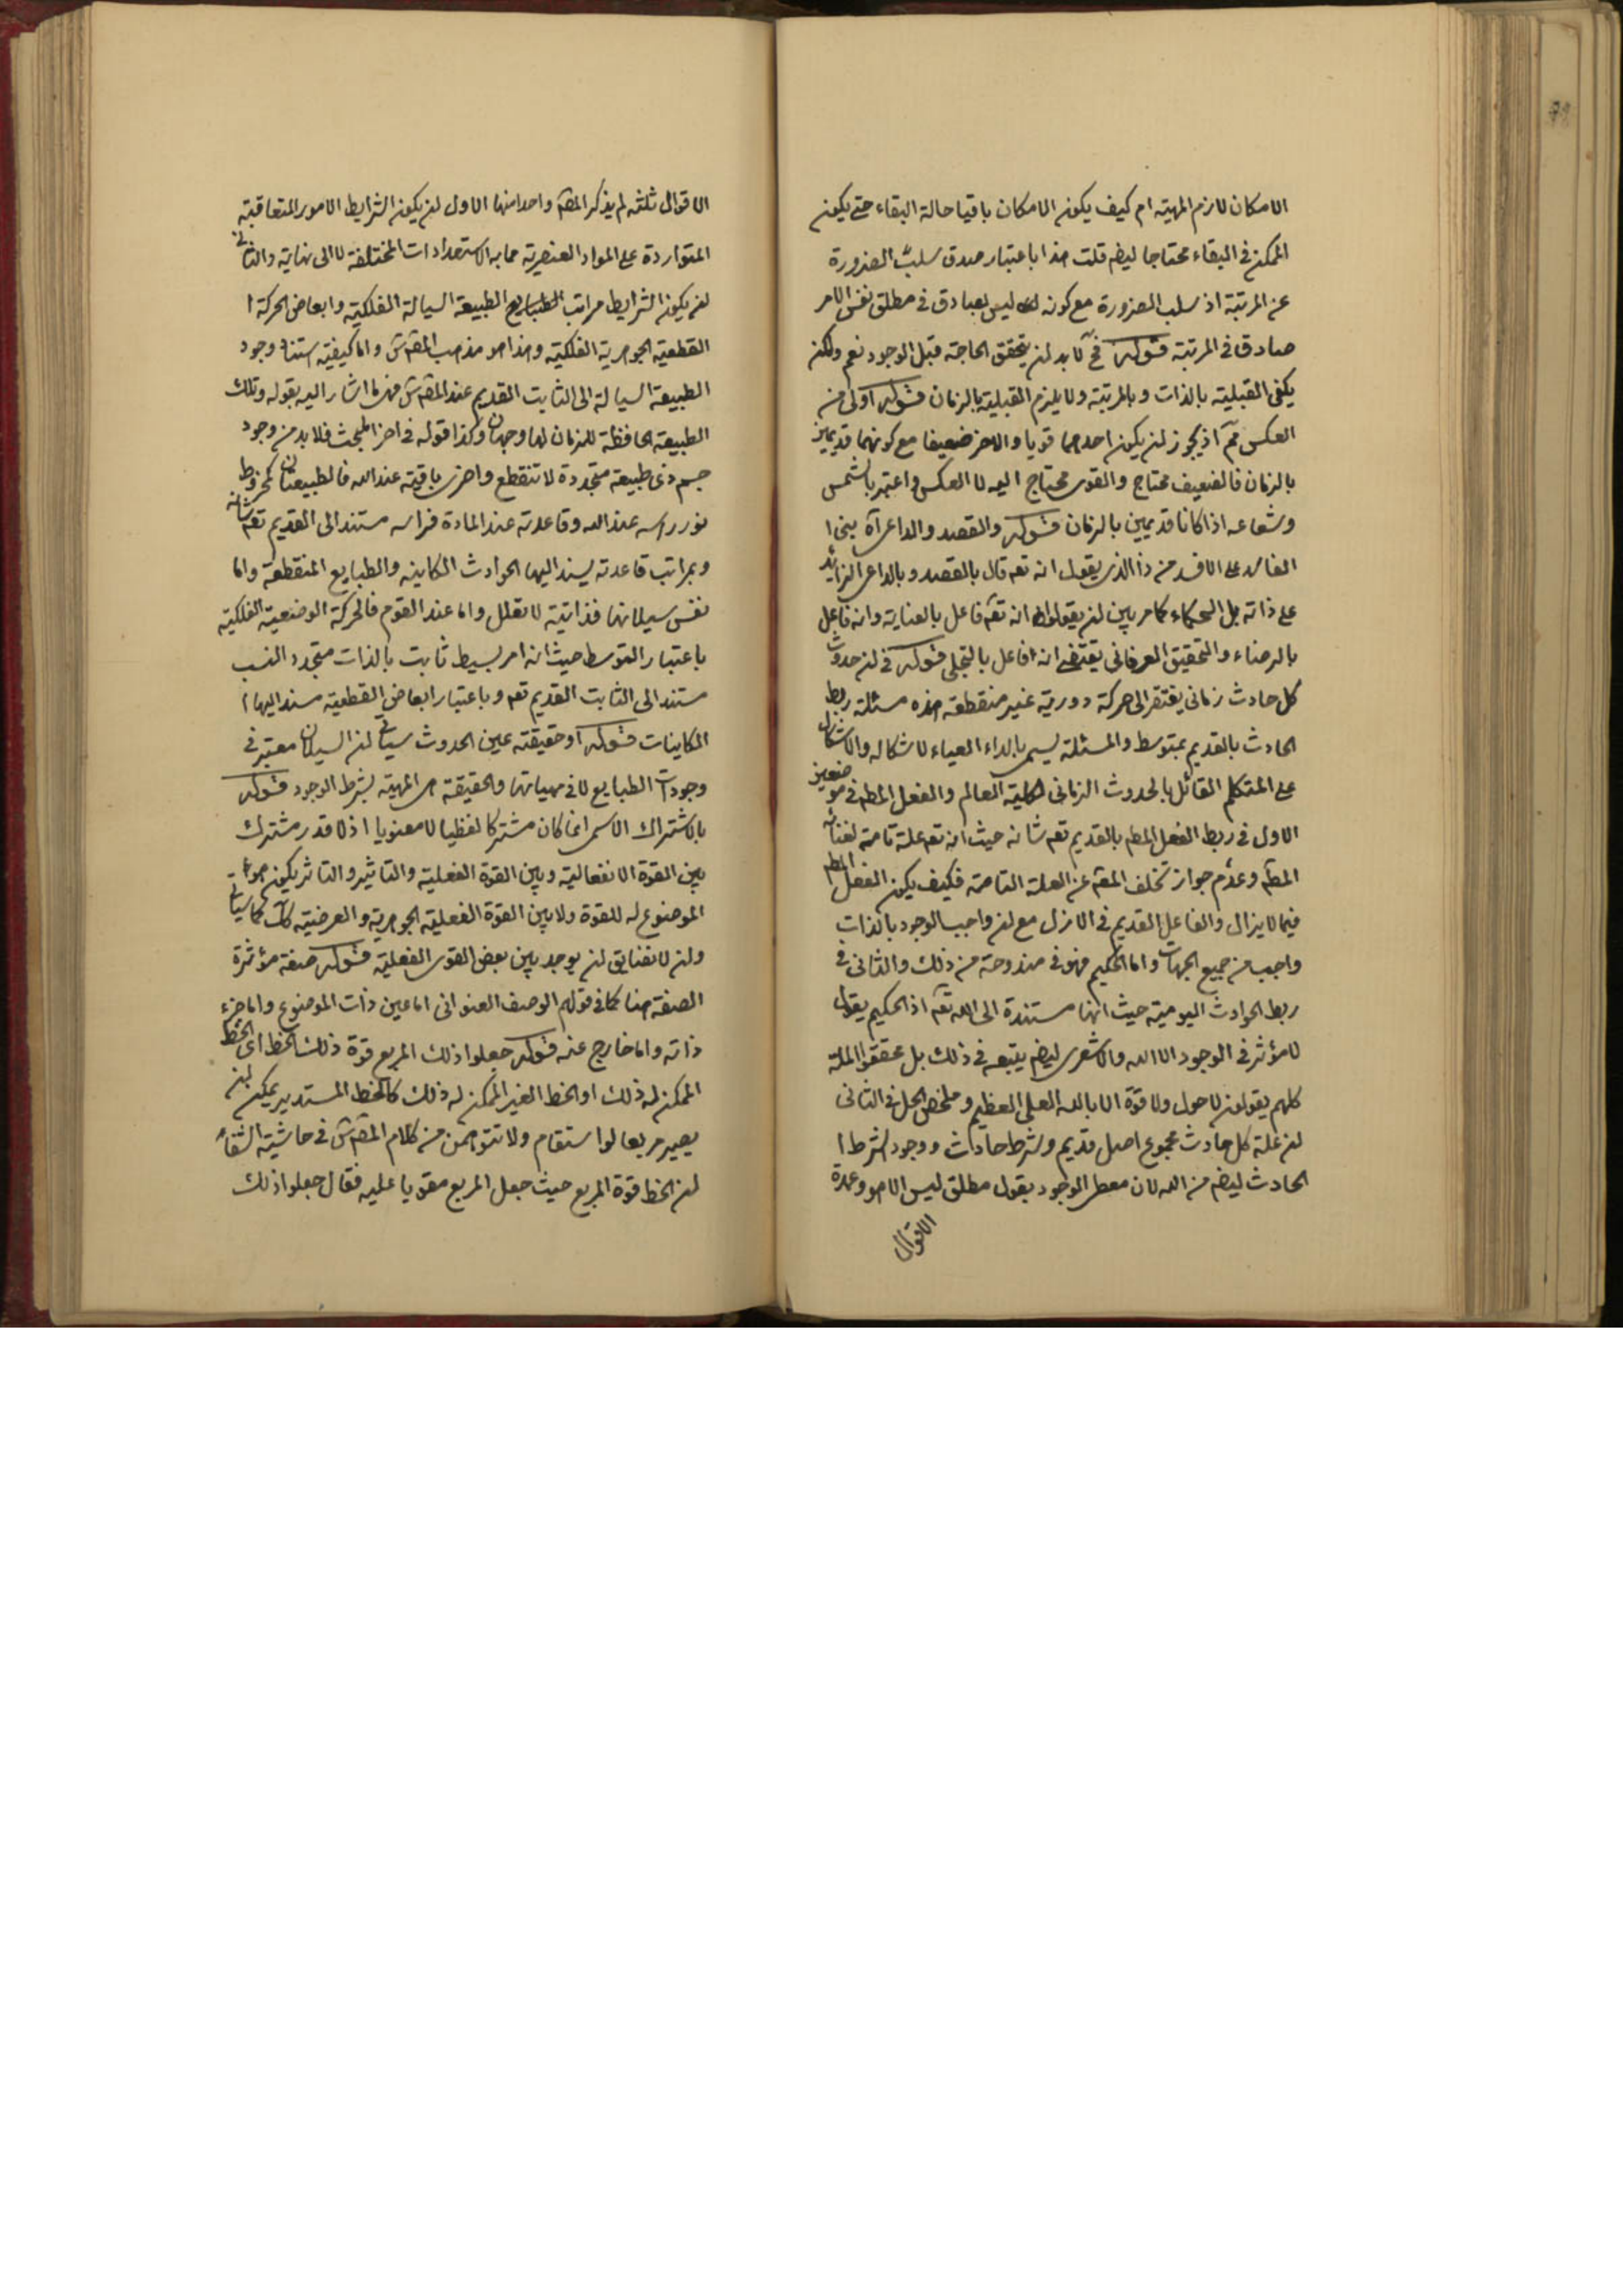 الامكان لازم المهية ام كيف يكون الامكان باقيا حالة البقاء حتى يكون
الممكن فى البقاء محتاجا ايضم قلت هذا باعتبار صدق سلب الضرورة
عن المرتبة اذ سلب الضرورة مع كونه ليس بصادق فى مطلق نفس الامر
صادق فى المرتبة قوله فح لابد ان يتحقق الحاجة قبل الوجود نعم ولكن
يكفى القبلية بالذات وبالمرتبة ولا يلزم القبلية بالزمان قوله اولى من
العكس مم اذ يجوز ان يكون احدهما قويا والاخر ضعيفا مع كونهما قديمين
بالزمان فالضعيف محتاج والقوى محتاج اليه لا العكس واعتبر بالشمس
وشعاعه اذا كانا قديمين بالزمان قوله والقصد والداعى آه بنى ا
الفاسد على الافسد من ذا الذى يقول انه تعم قال بالقصد وبالداعى الزائد
على ذاته بل الحكماء كما مر بين ان يقولوا انه تعم فاعل بالعناية وانه فاعل
بالرضاء والتحقيق العرفانى يقتضى انه فاعل بالتجلى قوله فى ان حدوث
كل حادث زمانى يفتقر الى حركة دورية غير منقطعة هذه مسئلة ربط
الحادث بالقديم بمتوسط والمسئلة يسمى بالداء العياء لاشكاله والاشكال
على المتكلم القائل بالحدوث الزمانى لكلية العالم والفعل المطم فى موضعين
الاول فى ربط الفعل المطم بالقديم تعم شانه حيث انه تعم علة تامة لغنائه
المطم وعدم جواز تخلف المعم عن العلة التامة فكيف يكون الفعل المطم
فيما لا يزال والفاعل القديم فى الازل مع ان واجب الوجود بالذات
واجب من جميع الجهات واما الحكيم فهو فى مندوحة من ذلك والثانى فى
ربط الحوادث اليومية حيث انها مستندة الى الله تعم اذ الحكيم يقول
لا مؤثر فى الوجود الا الله والاشعرى ايضم يتبعه فى ذلك بل محققوا الملة
كلهم يقولون لا حول ولا قوة الا بالله العلى العظيم وملخص الحل فى الثانى
ان علة كل حادث مجموع اصل قديم وشرط حادث ووجود الشرط ا
الحادث ايضم من الله لان معطى الوجود بقول مطلق ليس الا هو وعمدة
الاقوال
الاقوال ثلثة لم يذكر المصم واحدا منها الاول ان يكون الشرايط الامور المتعاقبة
المتواردة على المواد العنصرية مما به الاستعدادات المختلفة لا الى نهاية والثانى
ان يكون الشرايط مراتب الطبايع الطبيعة السيالة الفلكية وابعاض الحركة ا
القطعية الجوهرية الفلكية وهذا هو مذهب المصم س واما كيفية استناد وجود
الطبيعة السيالة الى الثابت القديم عند المصم س فهى ما اشار اليه بقوله وتلك
الطبيعة الحافظة للزمان لها وجهان وكذا قوله فى اخر المبحث فلابد من وجود
جسم ذى طبيعة متجددة لا تنقطع واخرى باقية عند الله فالطبيعتان كمخروط
نور راسه عند الله وقاعدته عند المادة فراسه مستند الى القديم تعم شانه
وبمراتب قاعدته يسند اليها الحوادث الكاينه والطبايع المنقطعة واما
نفس سيلانها فذاتية لا تعلل واما عند القوم فالحركة الوضعية الفلكية
باعتبار التوسط حيث انه امر بسيط ثابت بالذات متجدد النسب
مستند الى الثابت القديم تعم وباعتبار ابعاض القطعية مسند اليها ا
الكاينات قوله او حقيقته عين الحدوث سيأتى ان السيلان معتبر فى
وجودات الطبايع لا فى مهياتها والحقيقة هى المهية بشرط الوجود قوله
بالاشتراك الاسمى انما كان مشتركا لفظيا لا معنويا اذ لا قدر مشترك
بين القوة الانفعالية وبين القوة الفعلية والتاثير والتاثر يكون هو
الموضوع له للقوة ولا بين القوة الفعلية الجوهرية والعرضية كك كما سيأتى
وان لا تضايق ان يوجد بين بعض القوى الفعلية قوله صفة مؤثرة
الصفة هنا كما فى قولهم الوصف العنوانى اما عين ذات الموضوع واما جزء
ذاته واما خارج عنه قوله جعلوا ذلك المربع قوة ذلك الخط اى الخط
الممكن له ذلك او الخط الغير الممكن له ذلك كالخط المستدير يمكن ان
يصير مربعا لو استقام ولا تتوهمن من كلام المصم س فى حاشية الشفاء
ان الخط قوة المربع حيث جعل المربع مقويا عليه فقال جعلوا ذلك